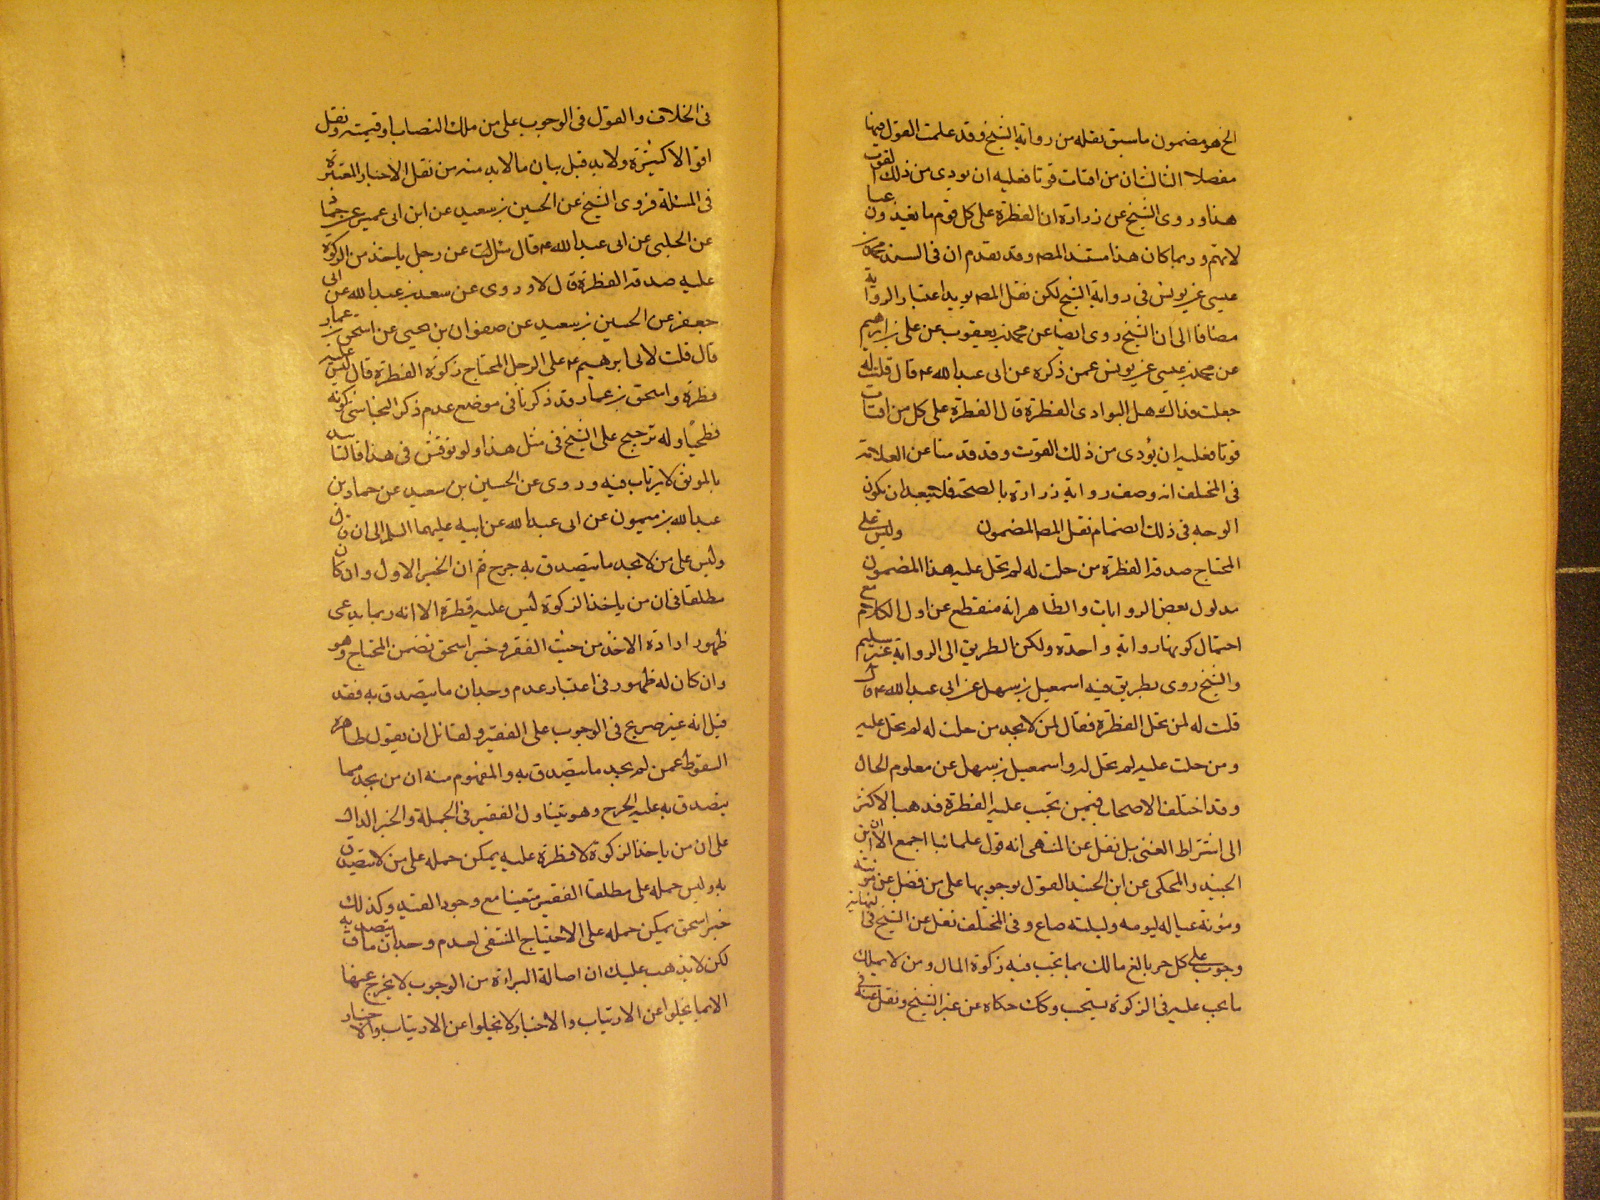 الخ هو مضمون ما سبق نقله من رواية الشيخ وقد علمت القول فيها
مفصلا الثالث ان من اقتات قوتا فعليه ان يودى من ذلك القوت
هذا وروى الشيخ عن زرارة ان الفطرة على كل قوم ما يغذون عيا
لاتهم وربما كان هذا مستند المصه وقد تقدم ان فى السند محمد بن
عيسى عن يونس فى رواية الشيخ لكن نقل المصه يويد اعتبار الرواية
مضافا الى ان الشيخ روى ايضا عن محمد بن يعقوب عن على بن ابرهيم
عن محمد بن عيسى عن يونس عمن ذكره عن ابى عبد الله ع قال قلت له
جعلت فداك هل البوادى الفطرة قال الفطرة على كل من اقتات
قوتا فعليه ان يؤدى من ذلك القوت وقد قدمنا عن العلامة
فى المختلف انه وصف رواية زرارة بالصحة فلا يبعد ان يكون
الوجه فى ذلك انضمام نقل المصه المضمون وليس على
المحتاج صدقة الفطرة من حلت له لم تحل عليه هذا المضمون
مدلول بعض الروايات والظاهر انه منقطع عن اول الكلام مع
احتمال كونها رواية واحدة ولكن الطريق الى الرواية غير سليم
والشيخ روى بطريق فيه اسمعيل بن سهل عن ابى عبد الله ع قال
قلت له لمن تحل الفطرة فقال لمن لا يجد من حلت له لم تحل عليه
ومن حلت عليه لم تحل له واسمعيل بن سهل عن معلوم الحال
وقد اختلف الاصحاب فيمن تجب عليه الفطرة فذهب الاكثر
الى اشتراط الغنى بل نقل عن المنتهى انه قول علمائنا اجمع الا ابن
الجنيد والمحكى عن ابن الجنيد القول بوجوبها على من فضل عن مؤنته
ومؤنة عياله ليومه وليلته صاع وفى المختلف نقل عن الشيخ فى النهاية
وجوب على كل حر بالغ مالك بما تجب فيه زكوة المال ومن لا يملك
ما يجب عليه فى الزكوة يستحب وكك حكاه عن غير الشيخ ونقل عنه
فى الخلاف والقول فى الوجوب على من ملك النصاب او قيمته ونقل
اقوالا كثيرة ولا بد قبل بيان ما لا بد منه من نقل الاخبار المعتبرة
فى المسئلة فروى الشيخ عن الحسين بن سعيد عن ابن ابى عمير عن حماد
عن الحلبى عن ابى عبد الله ع قال سئلت عن رجل ياخذ من الزكوة
عليه صدقة الفطرة قال لا وروى عن سعد بن عبد الله عن ابى
جعفر عن الحسين بن سعيد عن صفوان بن يحيى عن اسحق بن عمار
قال قلت لابى ابرهيم ع على الرجل المحتاج زكوة الفطرة قال ليس عليه
فطرة واسحق بن عمار قد ذكرنا فى موضع عدم ذكر النجاشى كونه
فطحيا وله ترجيح على الشيخ فى مثل هذا ولو نوقش فى هذا فالتاييد
بالموثق لا يرتاب فيه وروى عن الحسين بن سعيد عن حماد بن
عبد الله بن ميمون عن ابى عبد الله عن ابيه عليهما السلم الى ان قال
وليس على من لا يجد ما يتصدق به حرج ثم ان الخبر الاول وان كان
مطلقا فى ان من ياخذ الزكوة ليس عليه فطرة الا انه ربما يدعى
ظهور ارادة الاخذ من حيث الفقر وخبر اسحق تضمن المحتاج وهو
وان كان له ظهور فى اعتبار عدم وجدان ما يتصدق به فقد
قيل انه غير صريح فى الوجوب على الفقير ولقائل ان يقول ظاهره
السقوط عمن لم يجد ما يتصدق به والمفهوم منه ان من يجد مما
يتصدق به عليه الحرج وهو يتناول الفقير فى الجملة والخبر الدال
على ان من ياخذ الزكوة لا فطرة عليه يمكن حمله على من لا يتصدق
به وليس حمله على مطلقا الفقير متعينا مع وجود القيد وكذلك
خبر اسحق يمكن حمله على الاحتياج المنتفى لعدم وجدان ما يتصدق به
لكن لا يذهب عليك ان اصالة البراءة من الوجوب لا يخرج عنها
الا بما يخلوا عن الارتياب والاخبار لا تخلوا عن الارتياب والاخبار